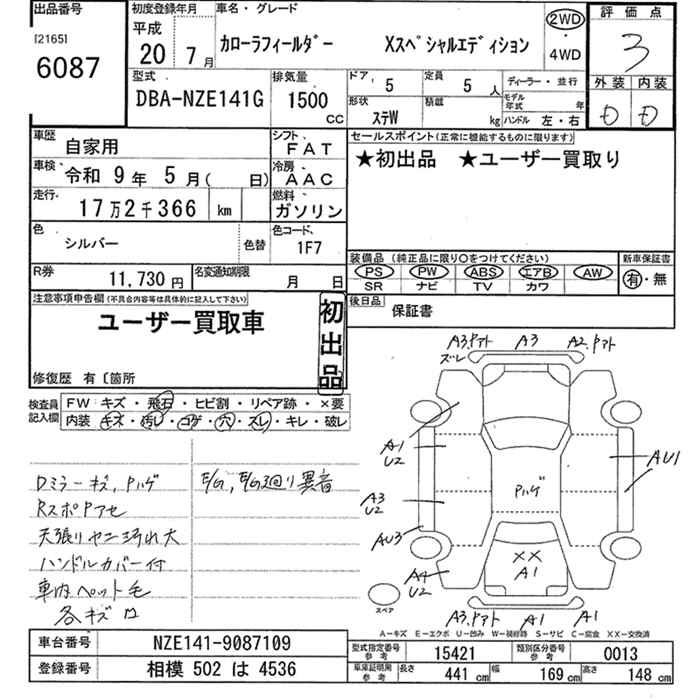 出品番号
[2165]
6087
初度登録年月
平成
20年 7月
車名・グレード
カローラフィールダー Xスペシャルエディション
2WD
・
4WD
評価点
3
外装 内装
D D
型式
DBA-NZE141G
排気量
1500
CC
ドア
5
定員
5人
形状
ステW
積載
kg
ディーラー・並行
モデル年式 年
ハンドル 左・右
車歴
自家用
シフト
FAT
車検
令和 9年 5月( 日)
冷房
AAC
走行
17万2千366 km
燃料
ガソリン
色
シルバー
色替
色コード
1F7
R券
11,730円
名変通知期限
月 日
セールスポイント(正常に機能するものに限ります)
★初出品 ★ユーザー買取り
装備品(純正品に限り○をつけてください)
PS PW ABS エアB AW
SR ナビ TV カワ
新車保証書
有・無
後日品
保証書
注意事項申告欄(不具合内容等は具体的に記入して下さい)
ユーザー買取車
初出品
修復歴 有〔箇所
検査員記入欄
FW キズ・飛石・ヒビ割・リペア跡・×要
内装 キズ・汚レ・コゲ・穴・スレ・キレ・破レ
Dミラーキズ,Pハゲ
E/G,E/G廻り異音
RスポPアセ
天張りヤニ汚れ大
ハンドルカバー付
車内ペット毛
各キズ凹
A3.Pアト
ズレ
A3
A2.Pアト
A1
U2
A3
U2
AU3
A4
U2
AU1
Pハゲ
XX
A1
スペア
A3.Pアト
A1
A1
A－キズ E－エクボ U－凹み W－補修跡 S－サビ C－腐食 XX－交換済
車台番号
NZE141-9087109
登録番号
相模 502 は 4536
型式指定番号
参考
15421
類別区分番号
参考
0013
車庫証明用
参考
長さ
441 cm
幅
169 cm
高さ
148 cm